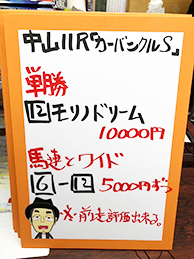 中山11R「カーバンクルS」
単勝
12モリノドリーム
10000円
馬連とワイド
6-12 5000円ずつ
前走評価出来る。